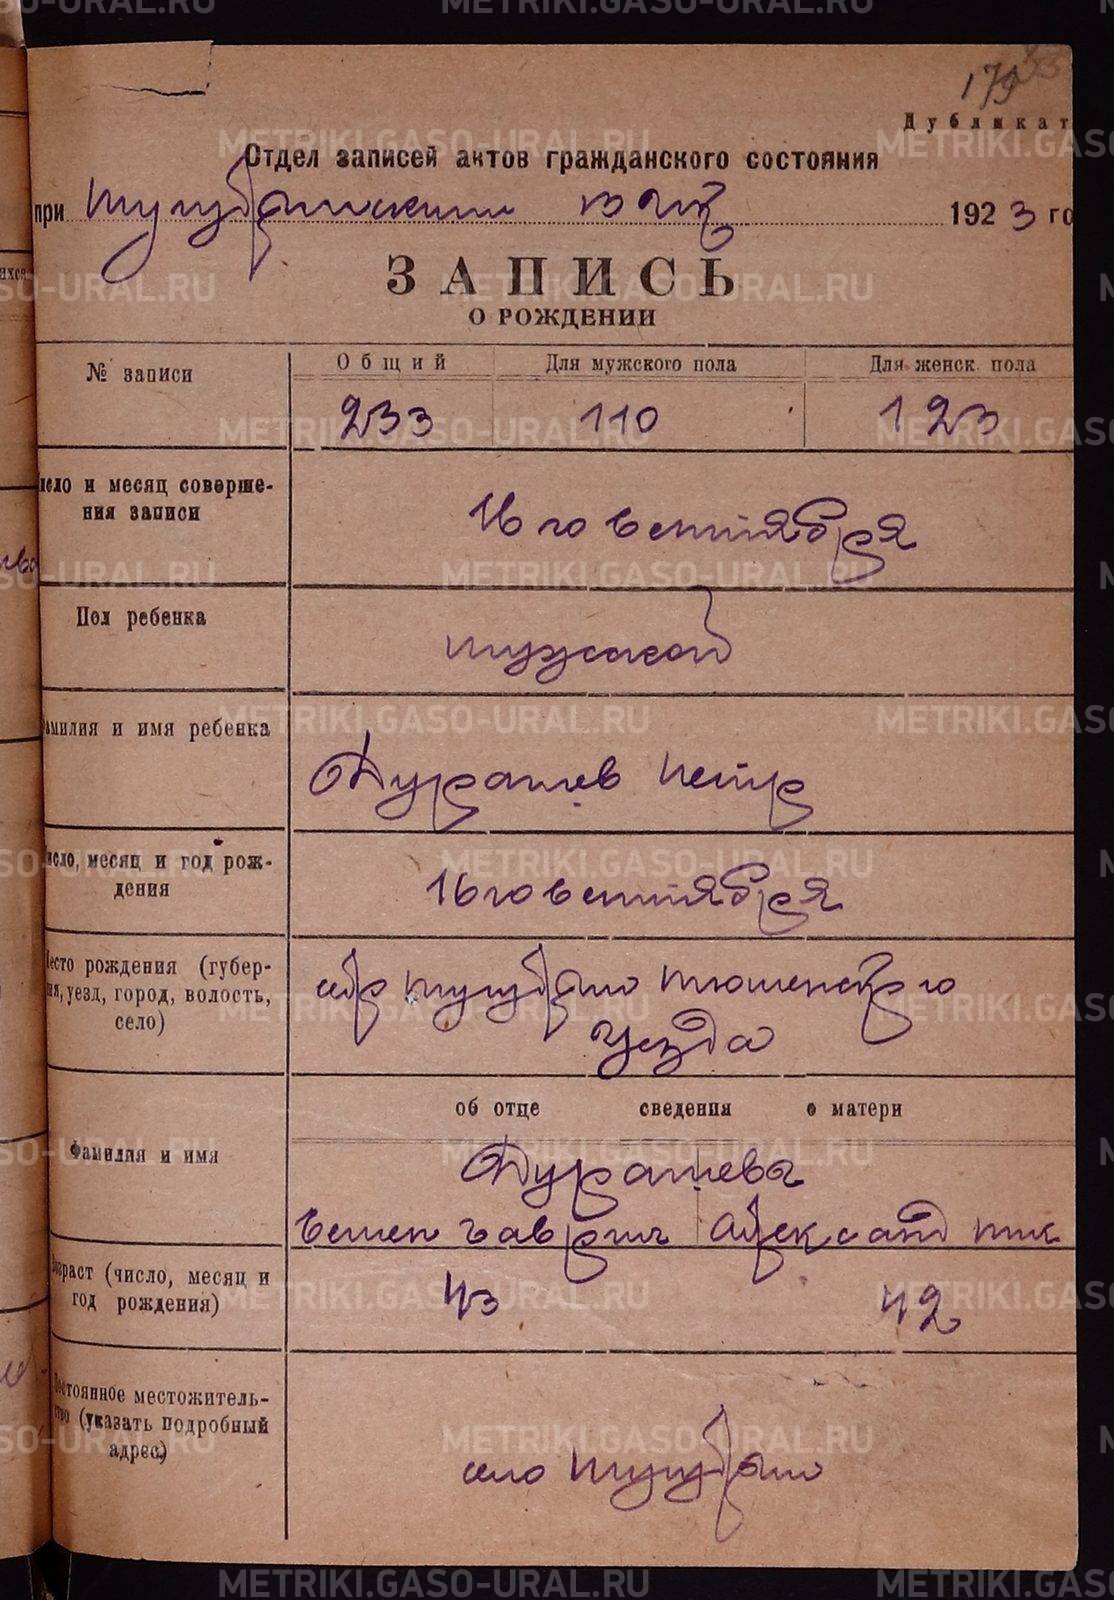 179
Дубликат
Отдел записей актов гражданского состояния
при Тугулымским вик 1923 го
ЗАПИСЬ
О РОЖДЕНИИ
№ записи
Общий
Для мужского пола
Для женск. пола
233
110
123
исло и месяц соверше-
ния записи
16 го Сентября
Пол ребенка
мужской
амилия и имя ребенка
Дурашев Петр
исло, месяц и год рож-
дения
16 го Сентября
есто рождения (губер-
ия, уезд, город, волость,
село)
Тугулым Тюменского
Уезда
об отце сведения о матери
Фамилия и имя
Дурашевы
Семен Гаврил Александ
озраст (число, месяц и
год рождения)
43
42
остоянное местожитель-
ство (указать подробный
адрес)
село Тугулым
METRIKI.GASO-URAL.RU